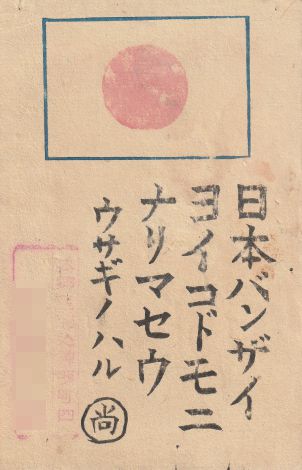 日本バンザイ
ヨイコドモニ
ナリマセウ
ウサギノハル
尚